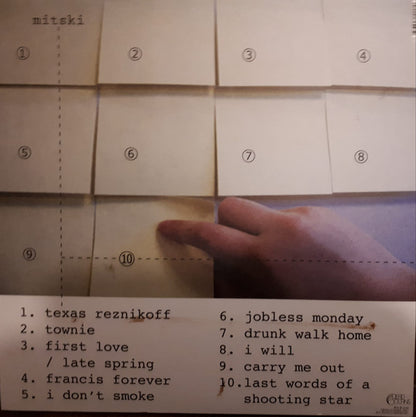 mitski
① ② ③ ④
⑤ ⑥ ⑦ ⑧
⑨ ⑩
1. texas reznikoff
2. townie
3. first love
/ late spring
4. francis forever
5. i don't smoke
6. jobless monday
7. drunk walk home
8. i will
9. carry me out
10.last words of a
shooting star